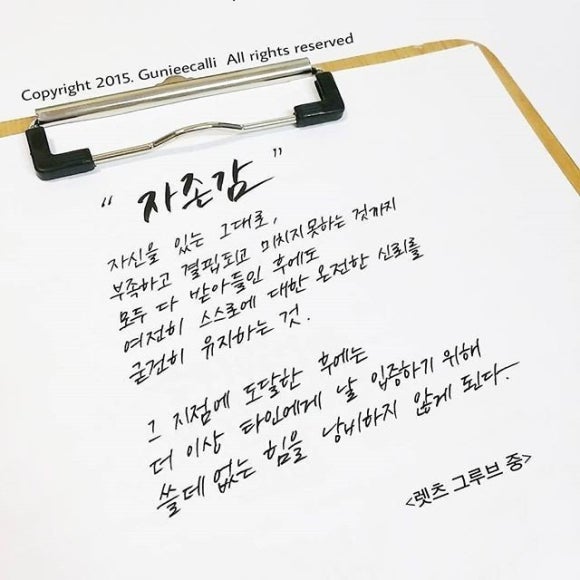 Copyright 2015. Gunieecalli All rights reserved
“ 자존감 ”
자신을 있는 그대로,
부족하고 결핍되고 미치지못하는 것까지
모두 다 받아들인 후에도
여전히 스스로에 대한 온전한 신뢰를
굳건히 유지하는 것.
그 지점에 도달한 후에는
더 이상 타인에게 날 입증하기 위해
쓸데없는 힘을 낭비하지 않게 된다.
<렛츠 그루브 중>